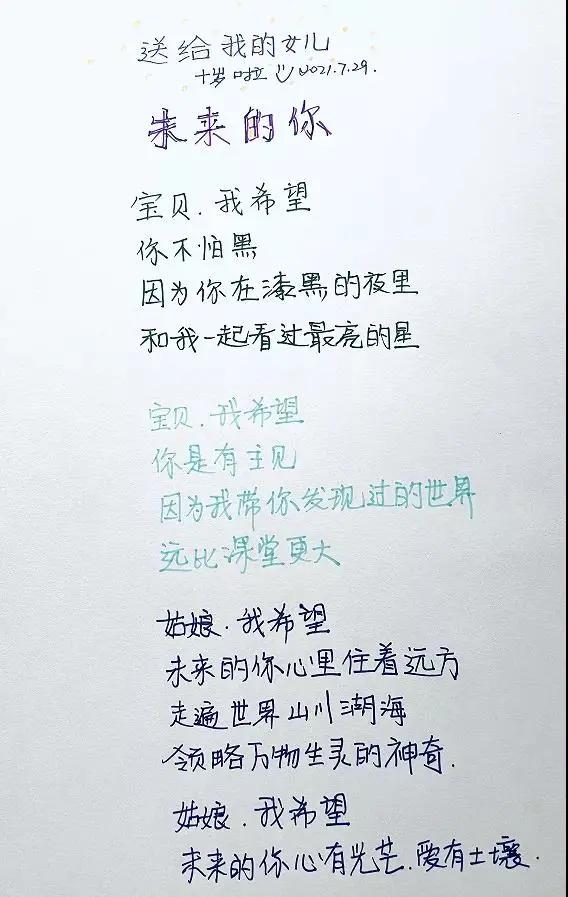 送给我的女儿
十岁啦 2021.7.29.
未来的你
宝贝.我希望
你不怕黑
因为你在漆黑的夜里
和我一起看过最亮的星
宝贝.我希望
你是有主见
因为我带你发现过的世界
远比课堂更大
姑娘.我希望
未来的你心里住着远方
走遍世界山川湖海
领略万物生灵的神奇.
姑娘.我希望
未来的你心有光芒.爱有土壤.